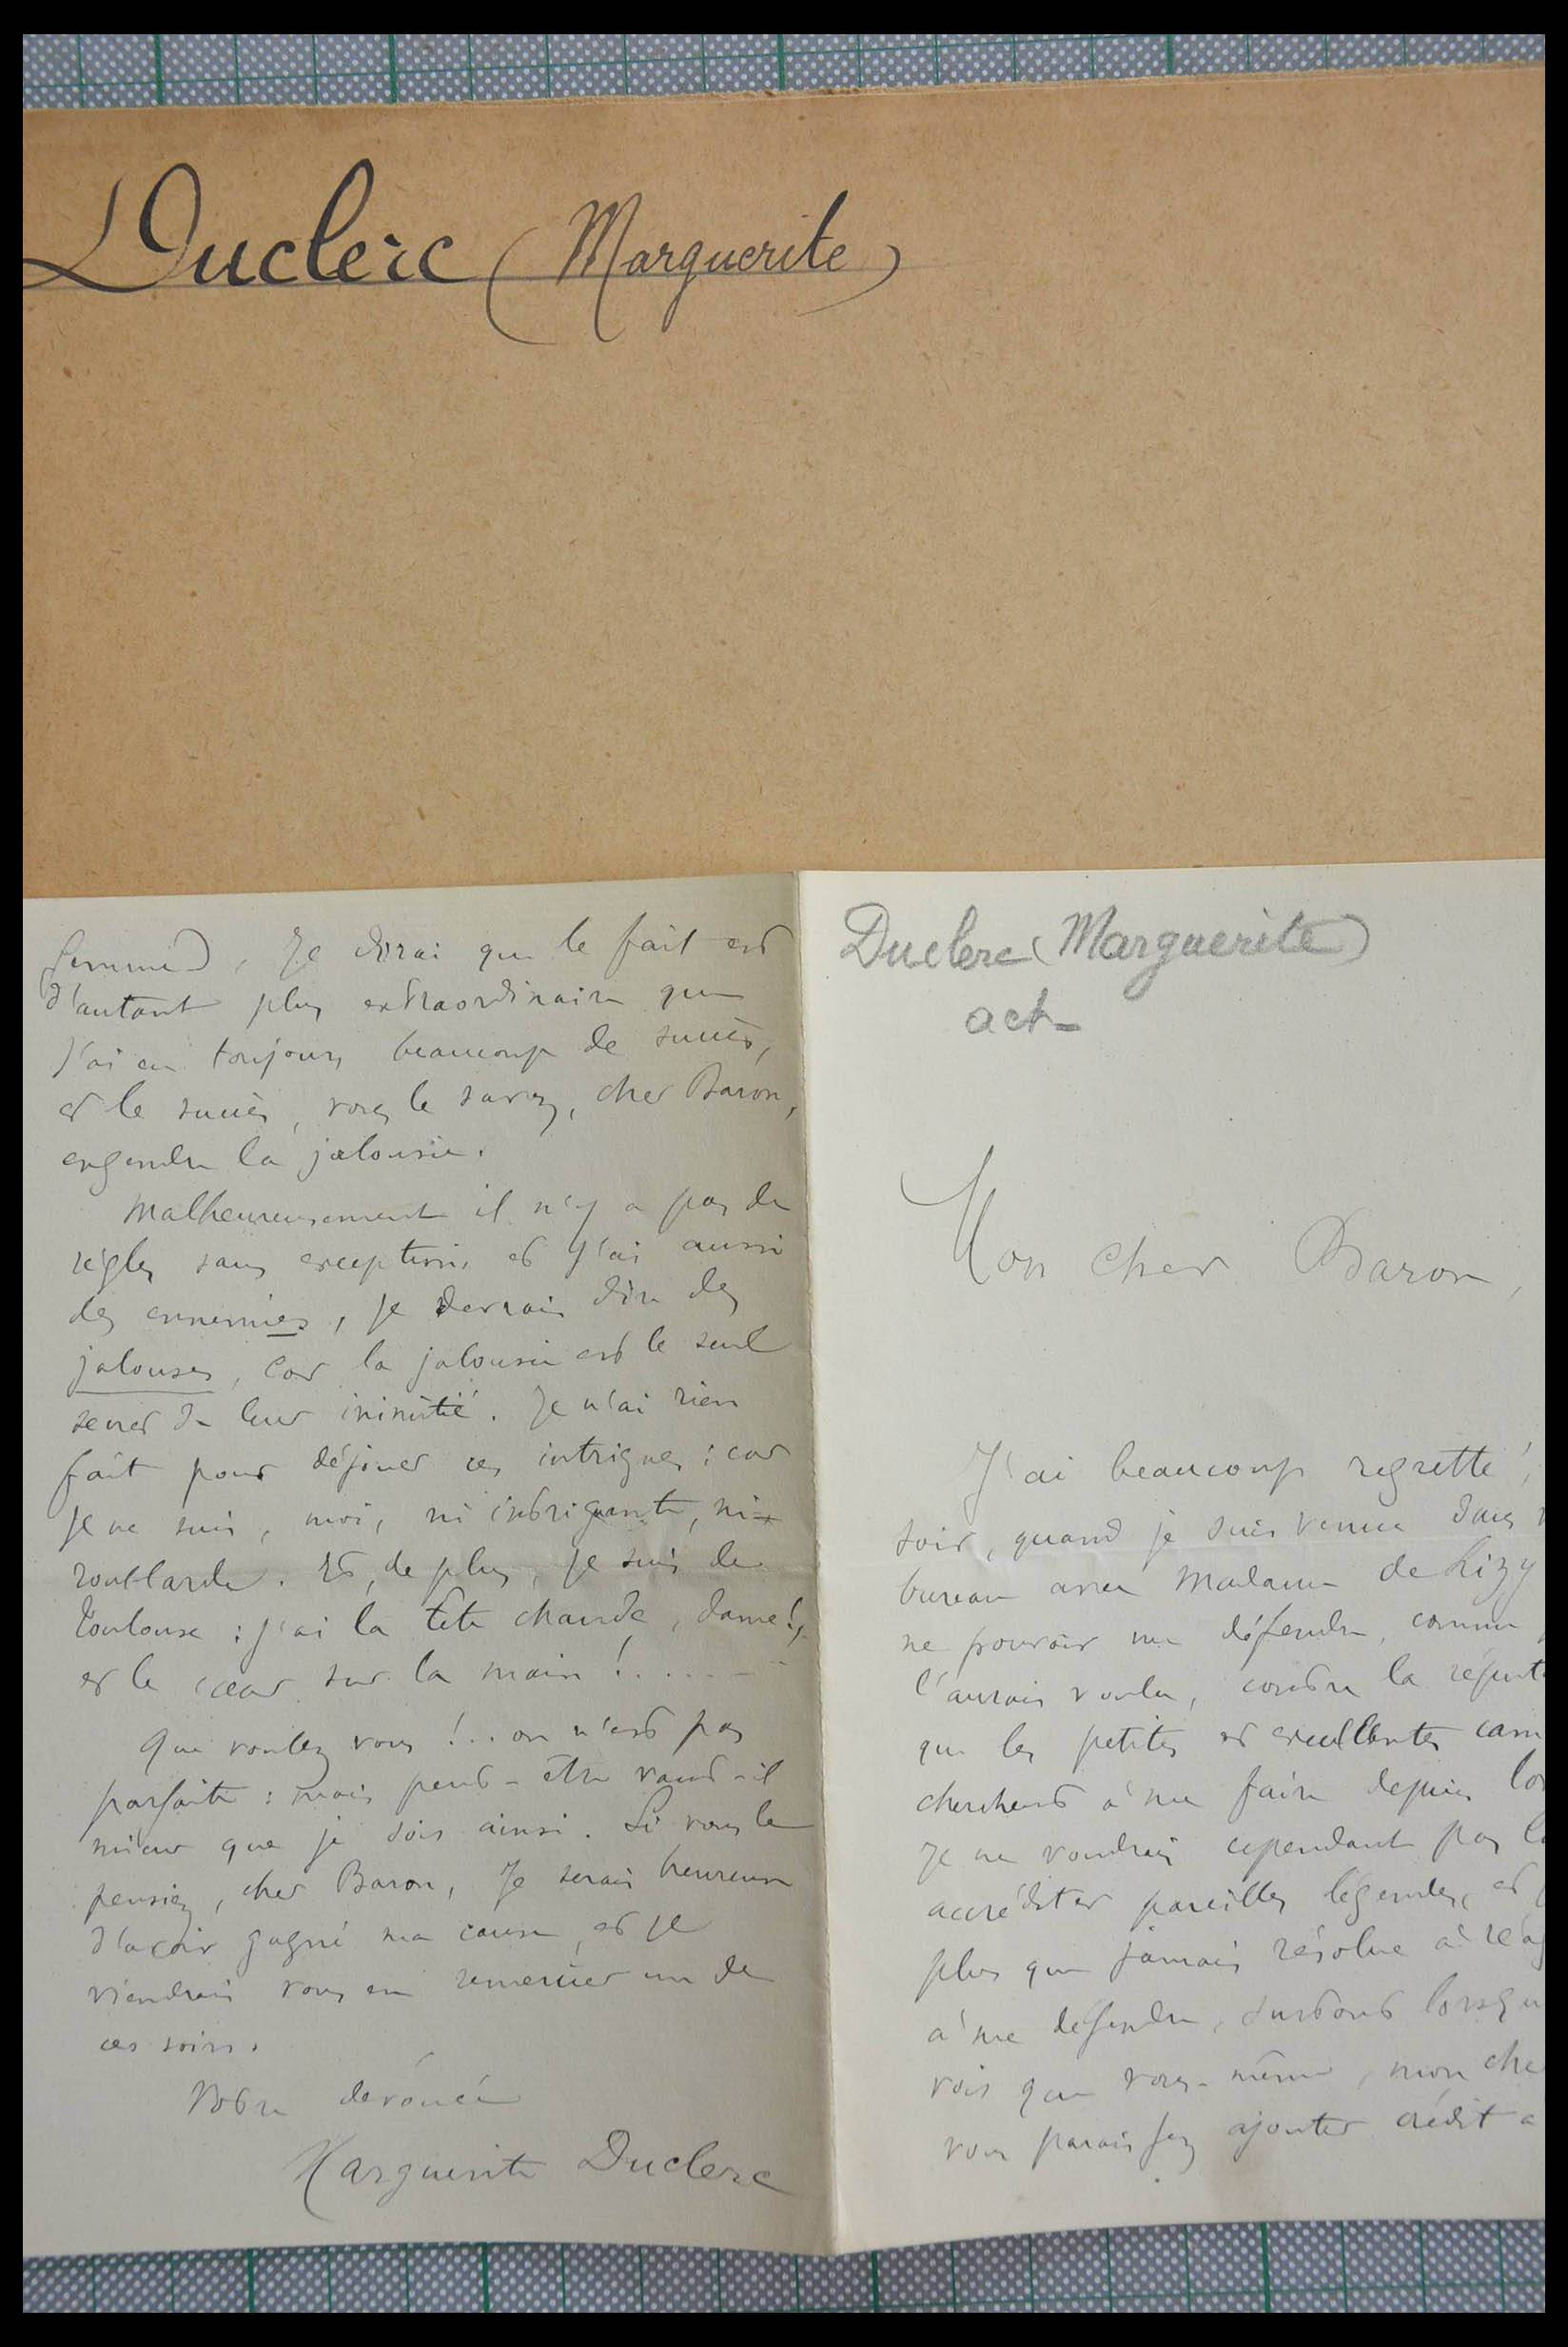 Duclerc (Marguerite)
femme), Je dirai que le fait est
d'autant plus extraordinaire que
j'ai eu toujours beaucoup de succès,
et le succès, vous le savez, cher Baron,
engendre la jalousie.
Malheureusement il n'y a pas de
règles sans exceptions et j'ai aussi
des ennemies, je devrais dire des
jalouses, car la jalousie est le seul
secret de leur inimitié. Je n'ai rien
fait pour déjouer ces intrigues : car
je ne suis, moi, ni intrigante, ni
roublarde. Et, de plus, je suis de
Toulouse : j'ai la tête chaude, dame!,
et le cœur sur la main !......
Que voulez vous !.. on n'est pas
parfaite : mais peut-être vaut-il
mieux que je sois ainsi. Si vous le
pensiez, cher Baron, Je serais heureuse
d'avoir gagné ma cause, et je
viendrais vous en remercier un de
ces soirs.
Votre dévouée
Marguerite Duclerc
Duclerc (Marguerite)
act-
Mon cher Baron,
J'ai beaucoup regretté,
soir, quand je suis venue dans
bureau avec Madame de Lizy
ne pouvoir me défendre, comme
l'aurais voulu, contre la réput
que les petites et excellentes cam
cherchent à me faire depuis lo
Je ne voudrais cependant pas
accréditer pareilles légendes, et
plus que jamais résolue à réag
à me défendre, surtout lorsqu
vois que vous-même, mon che
vous paraissez ajouter crédit a